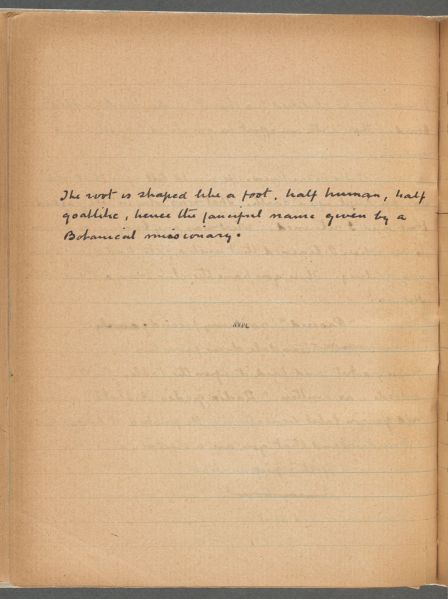 The root is shaped like a foot, half human, half
goatlike, hence the fanciful name given by a
Botanical missionary.